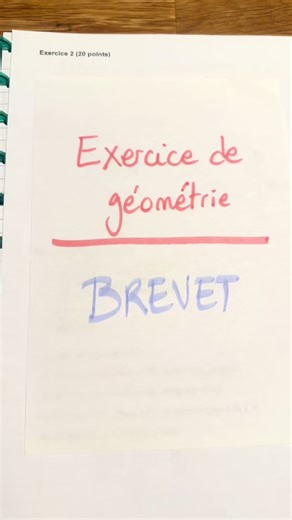 Exercice 2 (20 points)
Exercice de
géométrie
BREVET